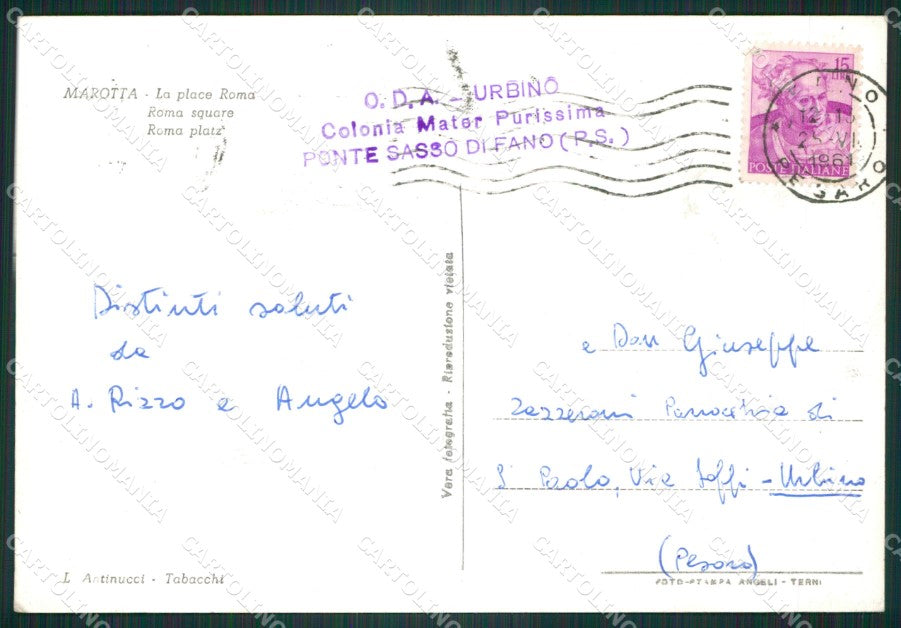 MAROTTA - La place Roma
Roma square
Roma platz
O. D. A. - URBINO
Colonia Mater Purissima
PONTE SASSO DI FANO (P.S.)
15
LIRE
POSTE ITALIANE
FANO
1961
PESARO
Distinti saluti
da
A. Rizzo e Angelo
Vera fotografia - Riproduzione vietata
a Don Giuseppe
Zazzeroni Parrocchia di
S. Paolo, Via Soffi - Urbino
(Pesaro)
L. Antinucci - Tabacchi
FOTO-STAMPA ANGELI - TERNI
CARTOLINOMANIA